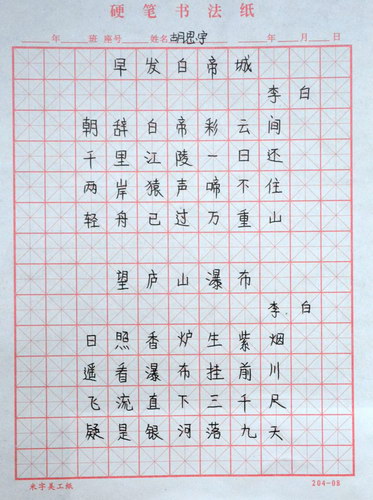 硬笔书法纸
年 班 座号 姓名 胡思宇 年 月 日
早发白帝城
李白
朝辞白帝彩云间
千里江陵一日还
两岸猿声啼不住
轻舟已过万重山
望庐山瀑布
李白
日照香炉生紫烟
遥看瀑布挂前川
飞流直下三千尺
疑是银河落九天
米字美工纸 204-08